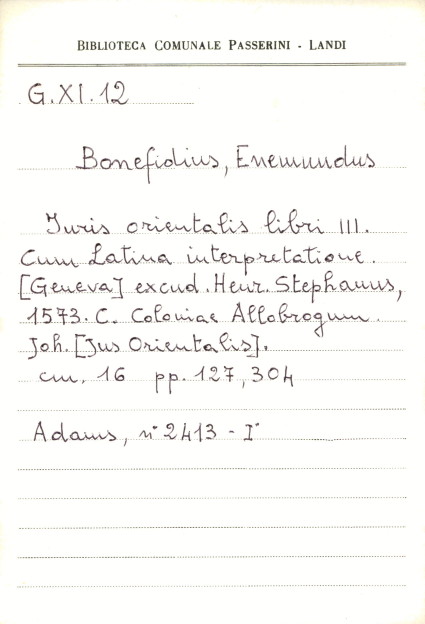 BIBLIOTECA COMUNALE PASSERINI - LANDI
G.XI.12
Bonefidius, Enemundus
Juris orientalis libri III.
Cum Latina interpretatione.
[Geneva] excud. Henr. Stephanus,
1573. C. Coloniae Allobrogum.
Joh. [Jus Orientalis].
cm. 16 pp. 127, 304
Adams, n° 2413 - I°